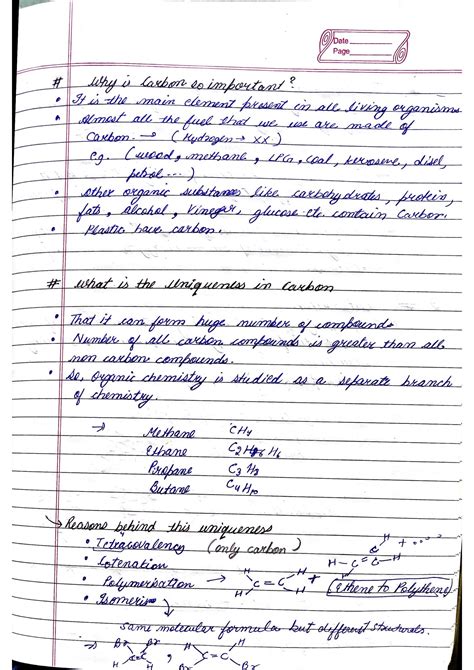 Date
Page
# Why is Carbon so important?
• It is the main element present in all living organisms
• Almost all the fuel that we use are made of
Carbon. → (Hydrogen → XX)
eg. (wood, methane, LPG, coal, kerosene, disel,
petrol ...)
• other organic substances like carbohydrates, protein,
fats, alcohol, vinegar, glucose etc. contain Carbon.
• Plastic have carbon.
# What is the Uniqueness in Carbon
• That it can form huge number of compounds
• Number of all carbon compounds is greater than all
non carbon compounds.
• So, Organic chemistry is studied as a separate branch
of chemistry.
→ Methane CH4
Ethane H6
Propane C3 H8
Butane C4 H10
↳ Reasons behind this uniqueness
• Tetracovalency (only carbon)
• Catenation
• Polymerisation → H H C=C H H + H H-C=C-H + ....
(Ethene to Polythene)
• Isomeris
same molecular formula but different structurals.
→ Br Br C=C H H , Br H C=C H Br